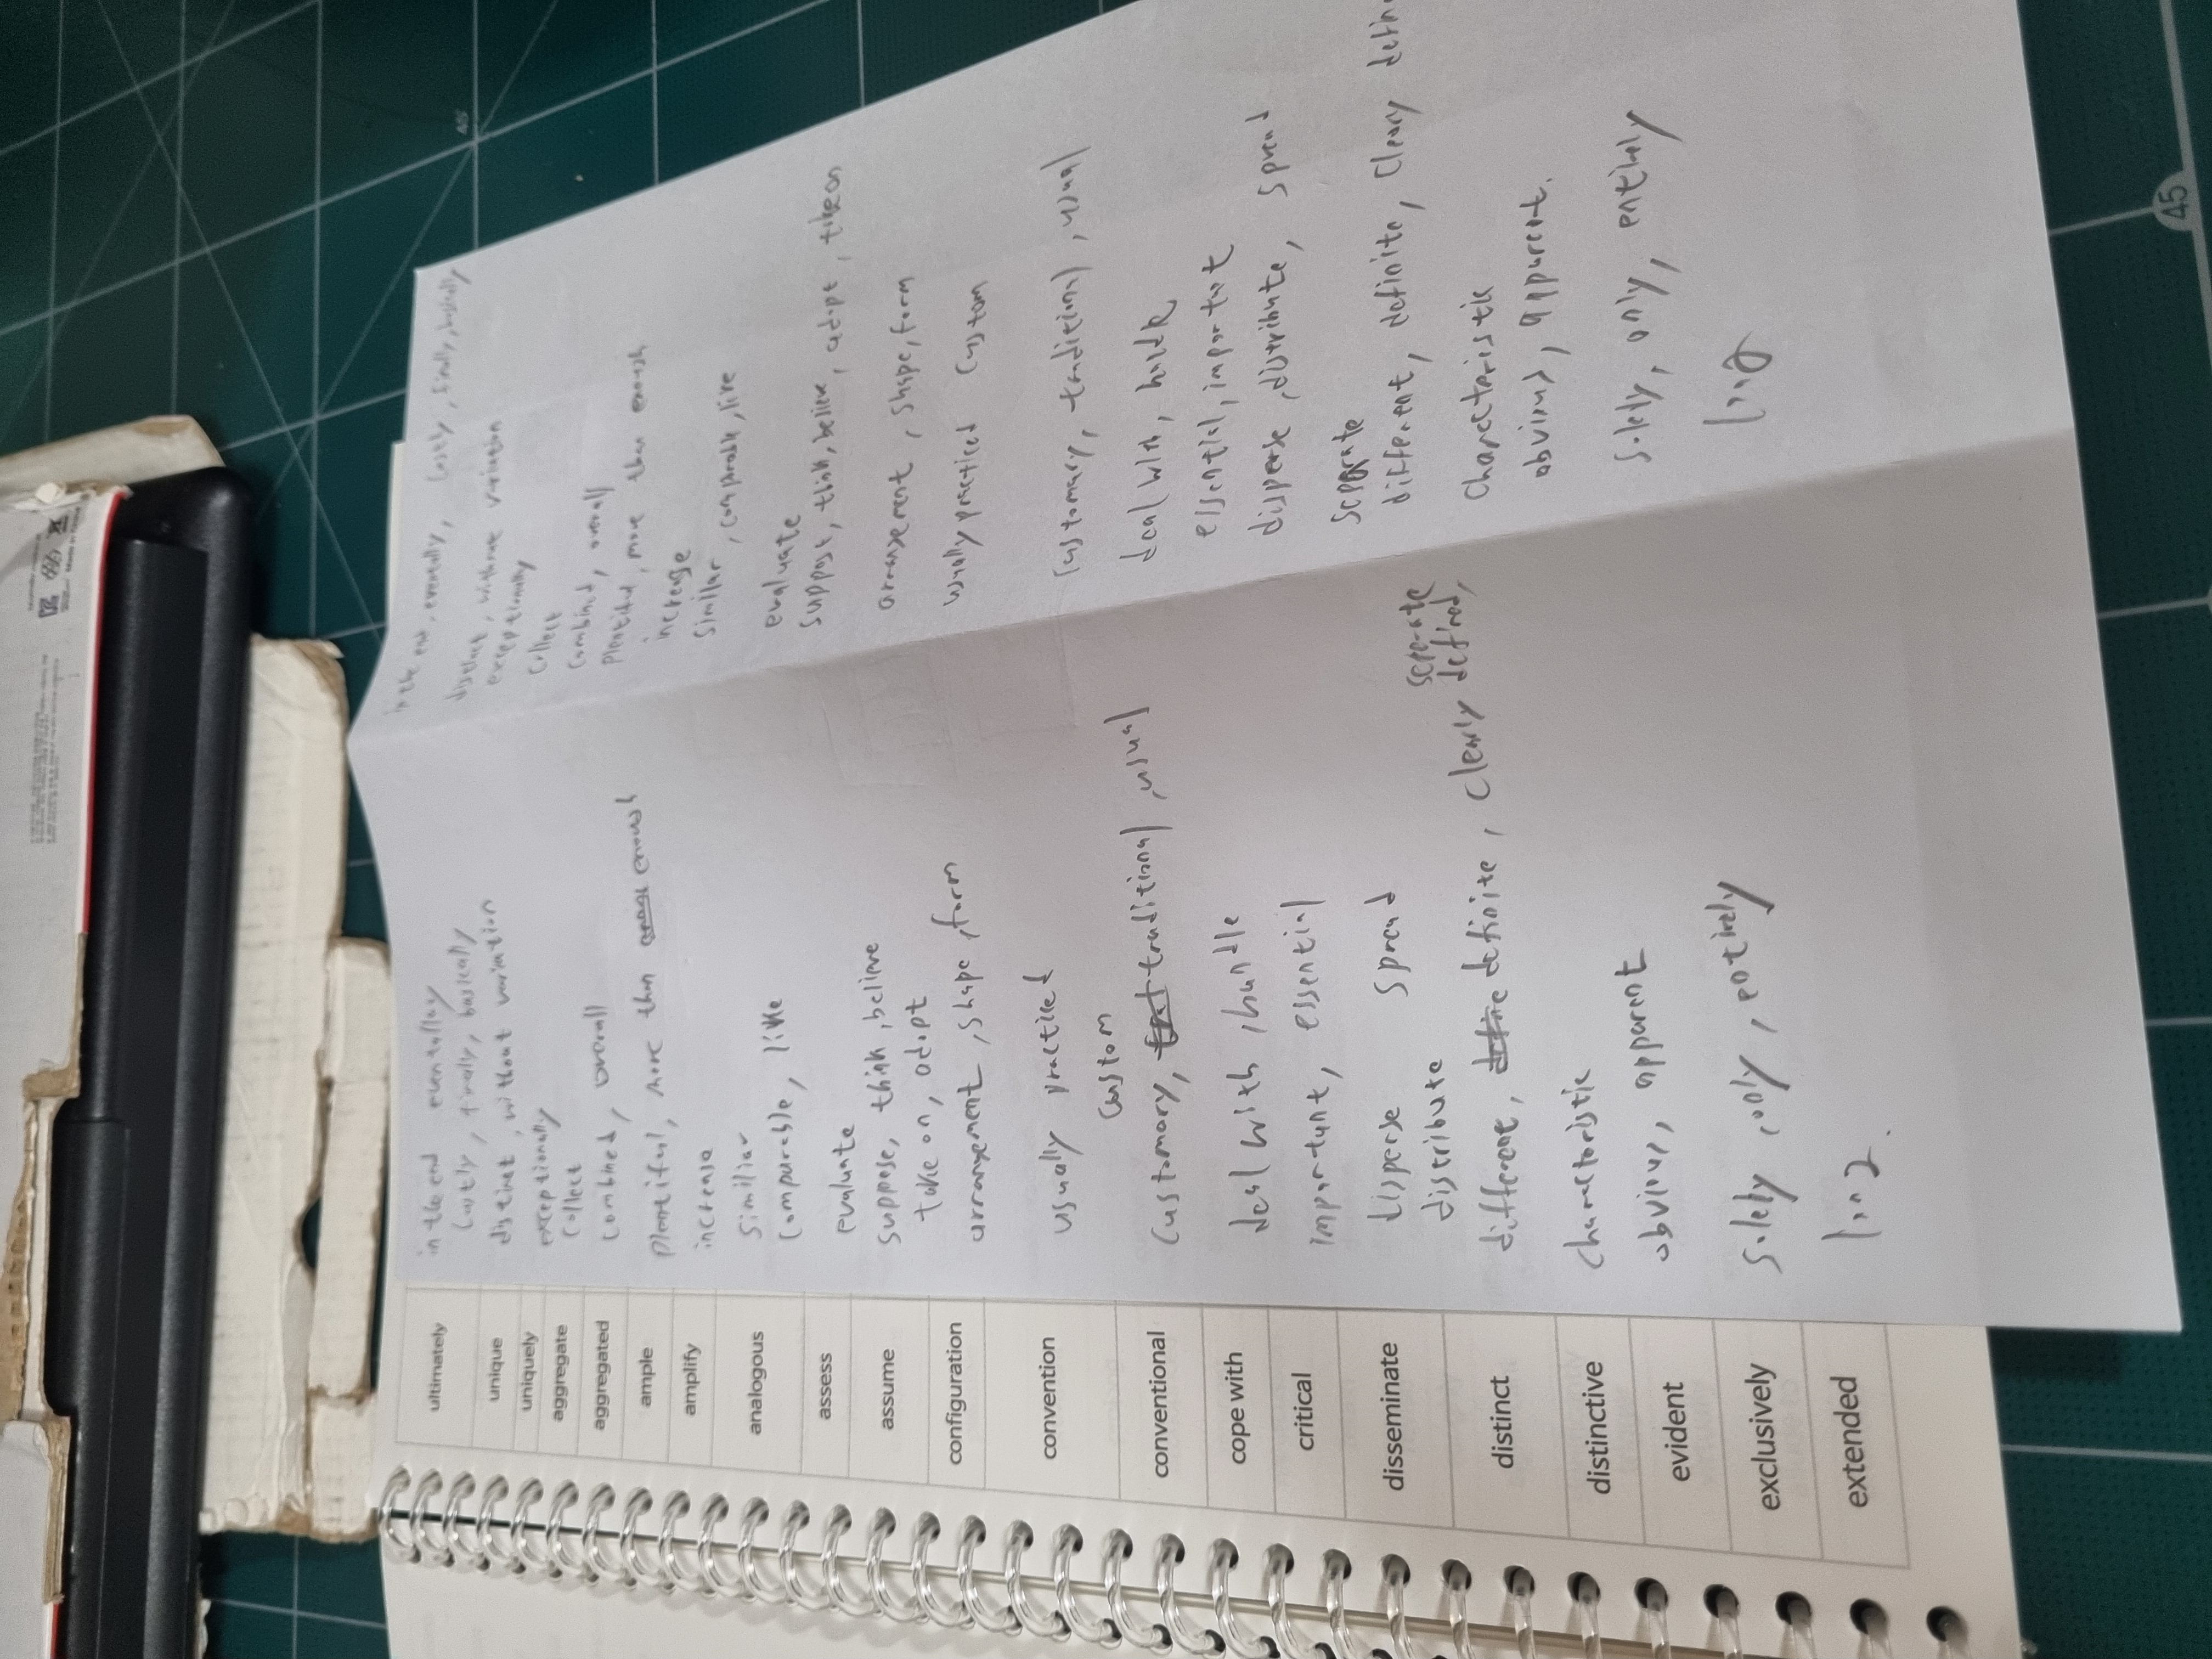 ultimately
unique
uniquely
aggregate
aggregated
ample
amplify
analogous
assess
assume
configuration
convention
conventional
cope with
critical
disseminate
distinct
distinctive
evident
exclusively
extended
in the end eventually
lastly, finally, basically
distinct, without variation
exceptionally
collect
combined, overall
plentiful, more than enough
increase
similiar
comparable, like
evaluate
suppose, think, believe
take on, adopt
arrangement, shape, form
usually practiced
custom
customary, traditional, usual
deal with, handle
important, essential
disperse spread
distribute
separate
different, definite, clearly defined,
characteristic
obvious, apparent
solely, only, entirely
long
in the end, eventually, lastly, finally, basically
distinct, without variation
exceptionally
collect
combined, overall
plentiful, more than enough
increase
similar, comparable, like
evaluate
suppose, think, believe, adopt, take on
arrangement, shape, form
usually practiced custom
customary, traditional, usual
deal with, handle
essential, important
disperse, distribute, spread
separate
different, definite, cleary
characteristic
obvious, apparent.
solely, only, entirely
long
45
45